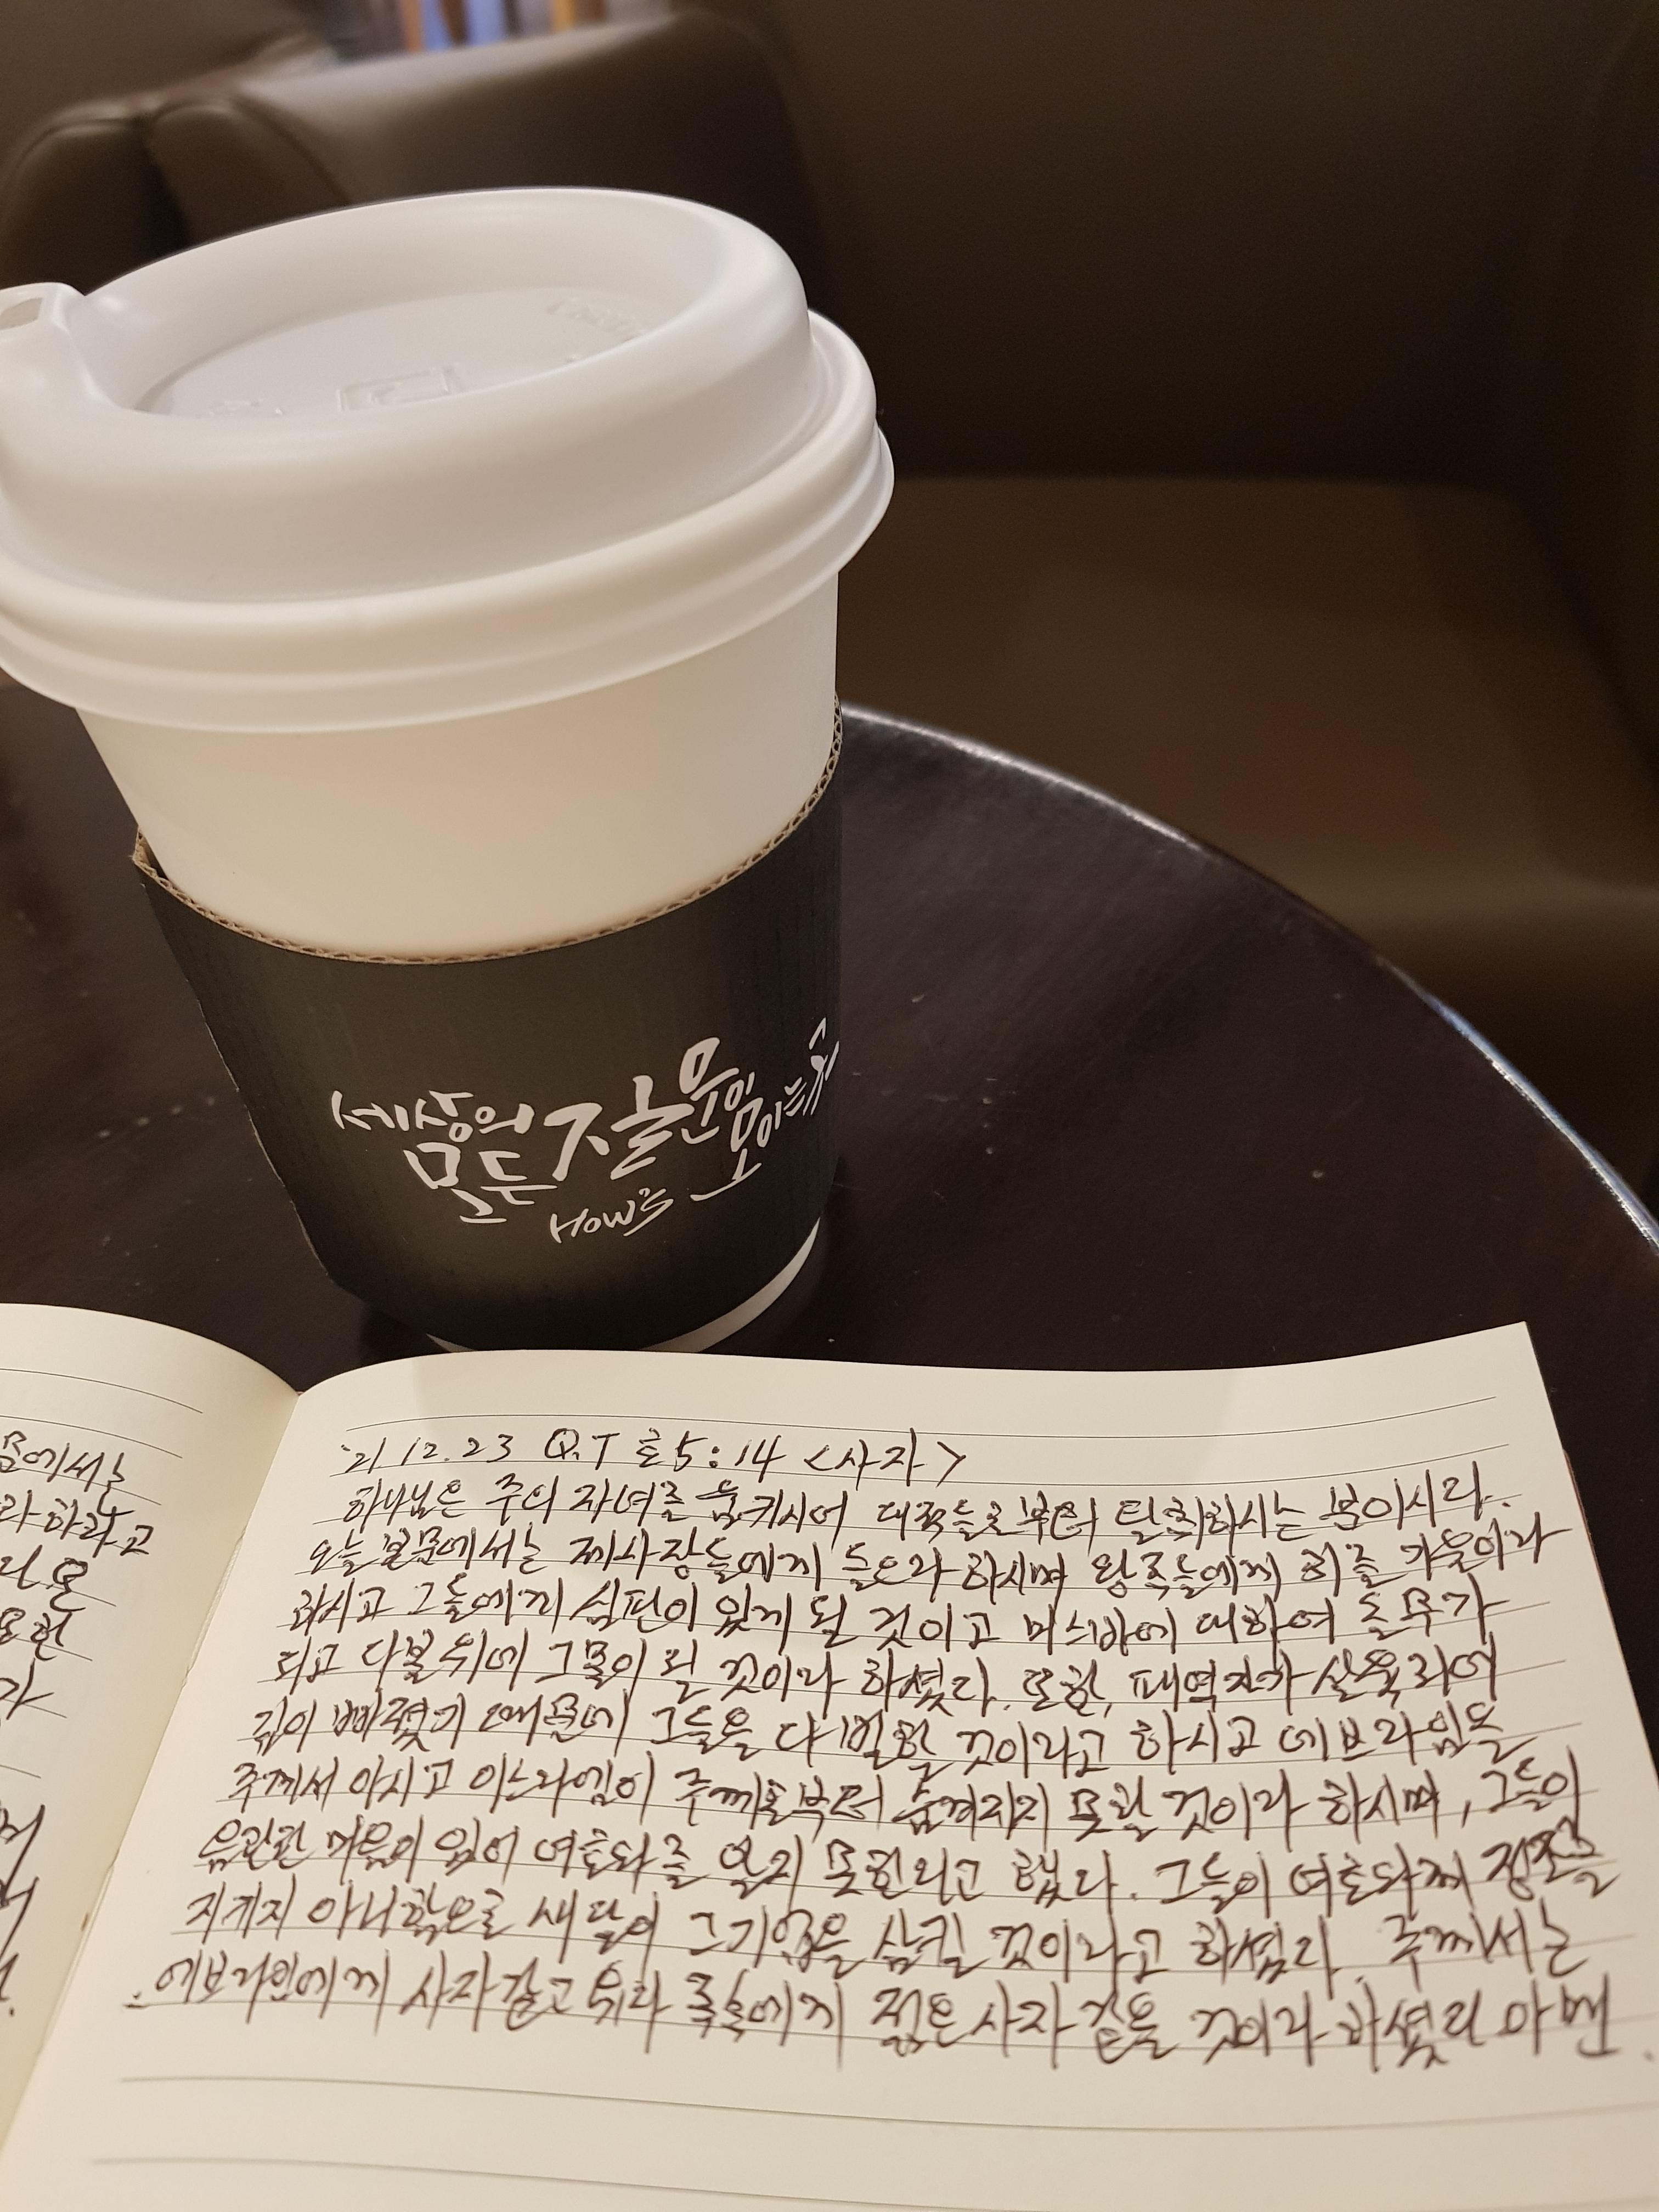 세상의
모든 질문이
모이는 곳
How's
'21 12.23 Q.T 호5:14 <사자>
하나님은 주의 자녀를 움키시어 대적들로부터 탈취하시는 분이시라.
오늘 본문에서는 제사장들에게 들으라 하시며 왕족들에게 귀를 기울이라
하시고 그들에게 심판이 있게 될 것이고 미스바에 대하여 올무가
되고 다볼 위에 그물이 될 것이라 하셨다. 또한, 패역자가 살육죄에
깊이 빠졌기 때문에 그들을 다 벌할 것이라고 하시고 에브라임을
주께서 아시고 이스라엘이 주께로부터 숨겨지지 못할 것이라 하시며, 그들이
음란한 마음이 있어 여호와를 알지 못한다고 했다. 그들이 여호와께 정조를
지키지 아니함으로 새 달이 그 기업을 삼킬 것이라고 하셨다. 주께서는
에브라임에게 사자 같고 유다 족속에게 젊은 사자 같을 것이라 하셨다 아멘.
에서는
라 하라고